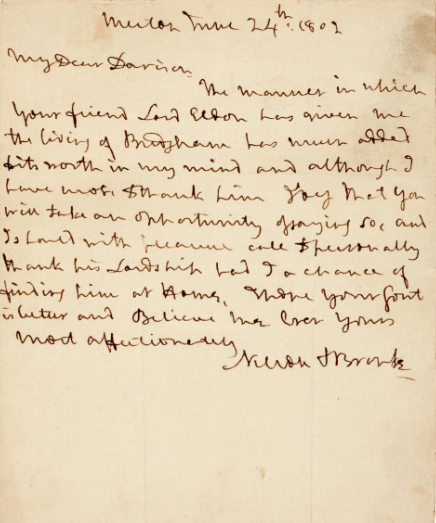 Merton June 24th: 1802
My Dear Davison
The manner in which
your friend Lord Eldon has given me
the living of Bridgham has much added
to its worth in my mind and although I
have thank him I beg that you
will take an opportunity of saying so, and
I should with pleasure call & personally
thank his Lordship had I a chance of
finding him at Home, I hope your Gout
is better and Believe me Ever Yours
most affectionately
Nelson & Bronte